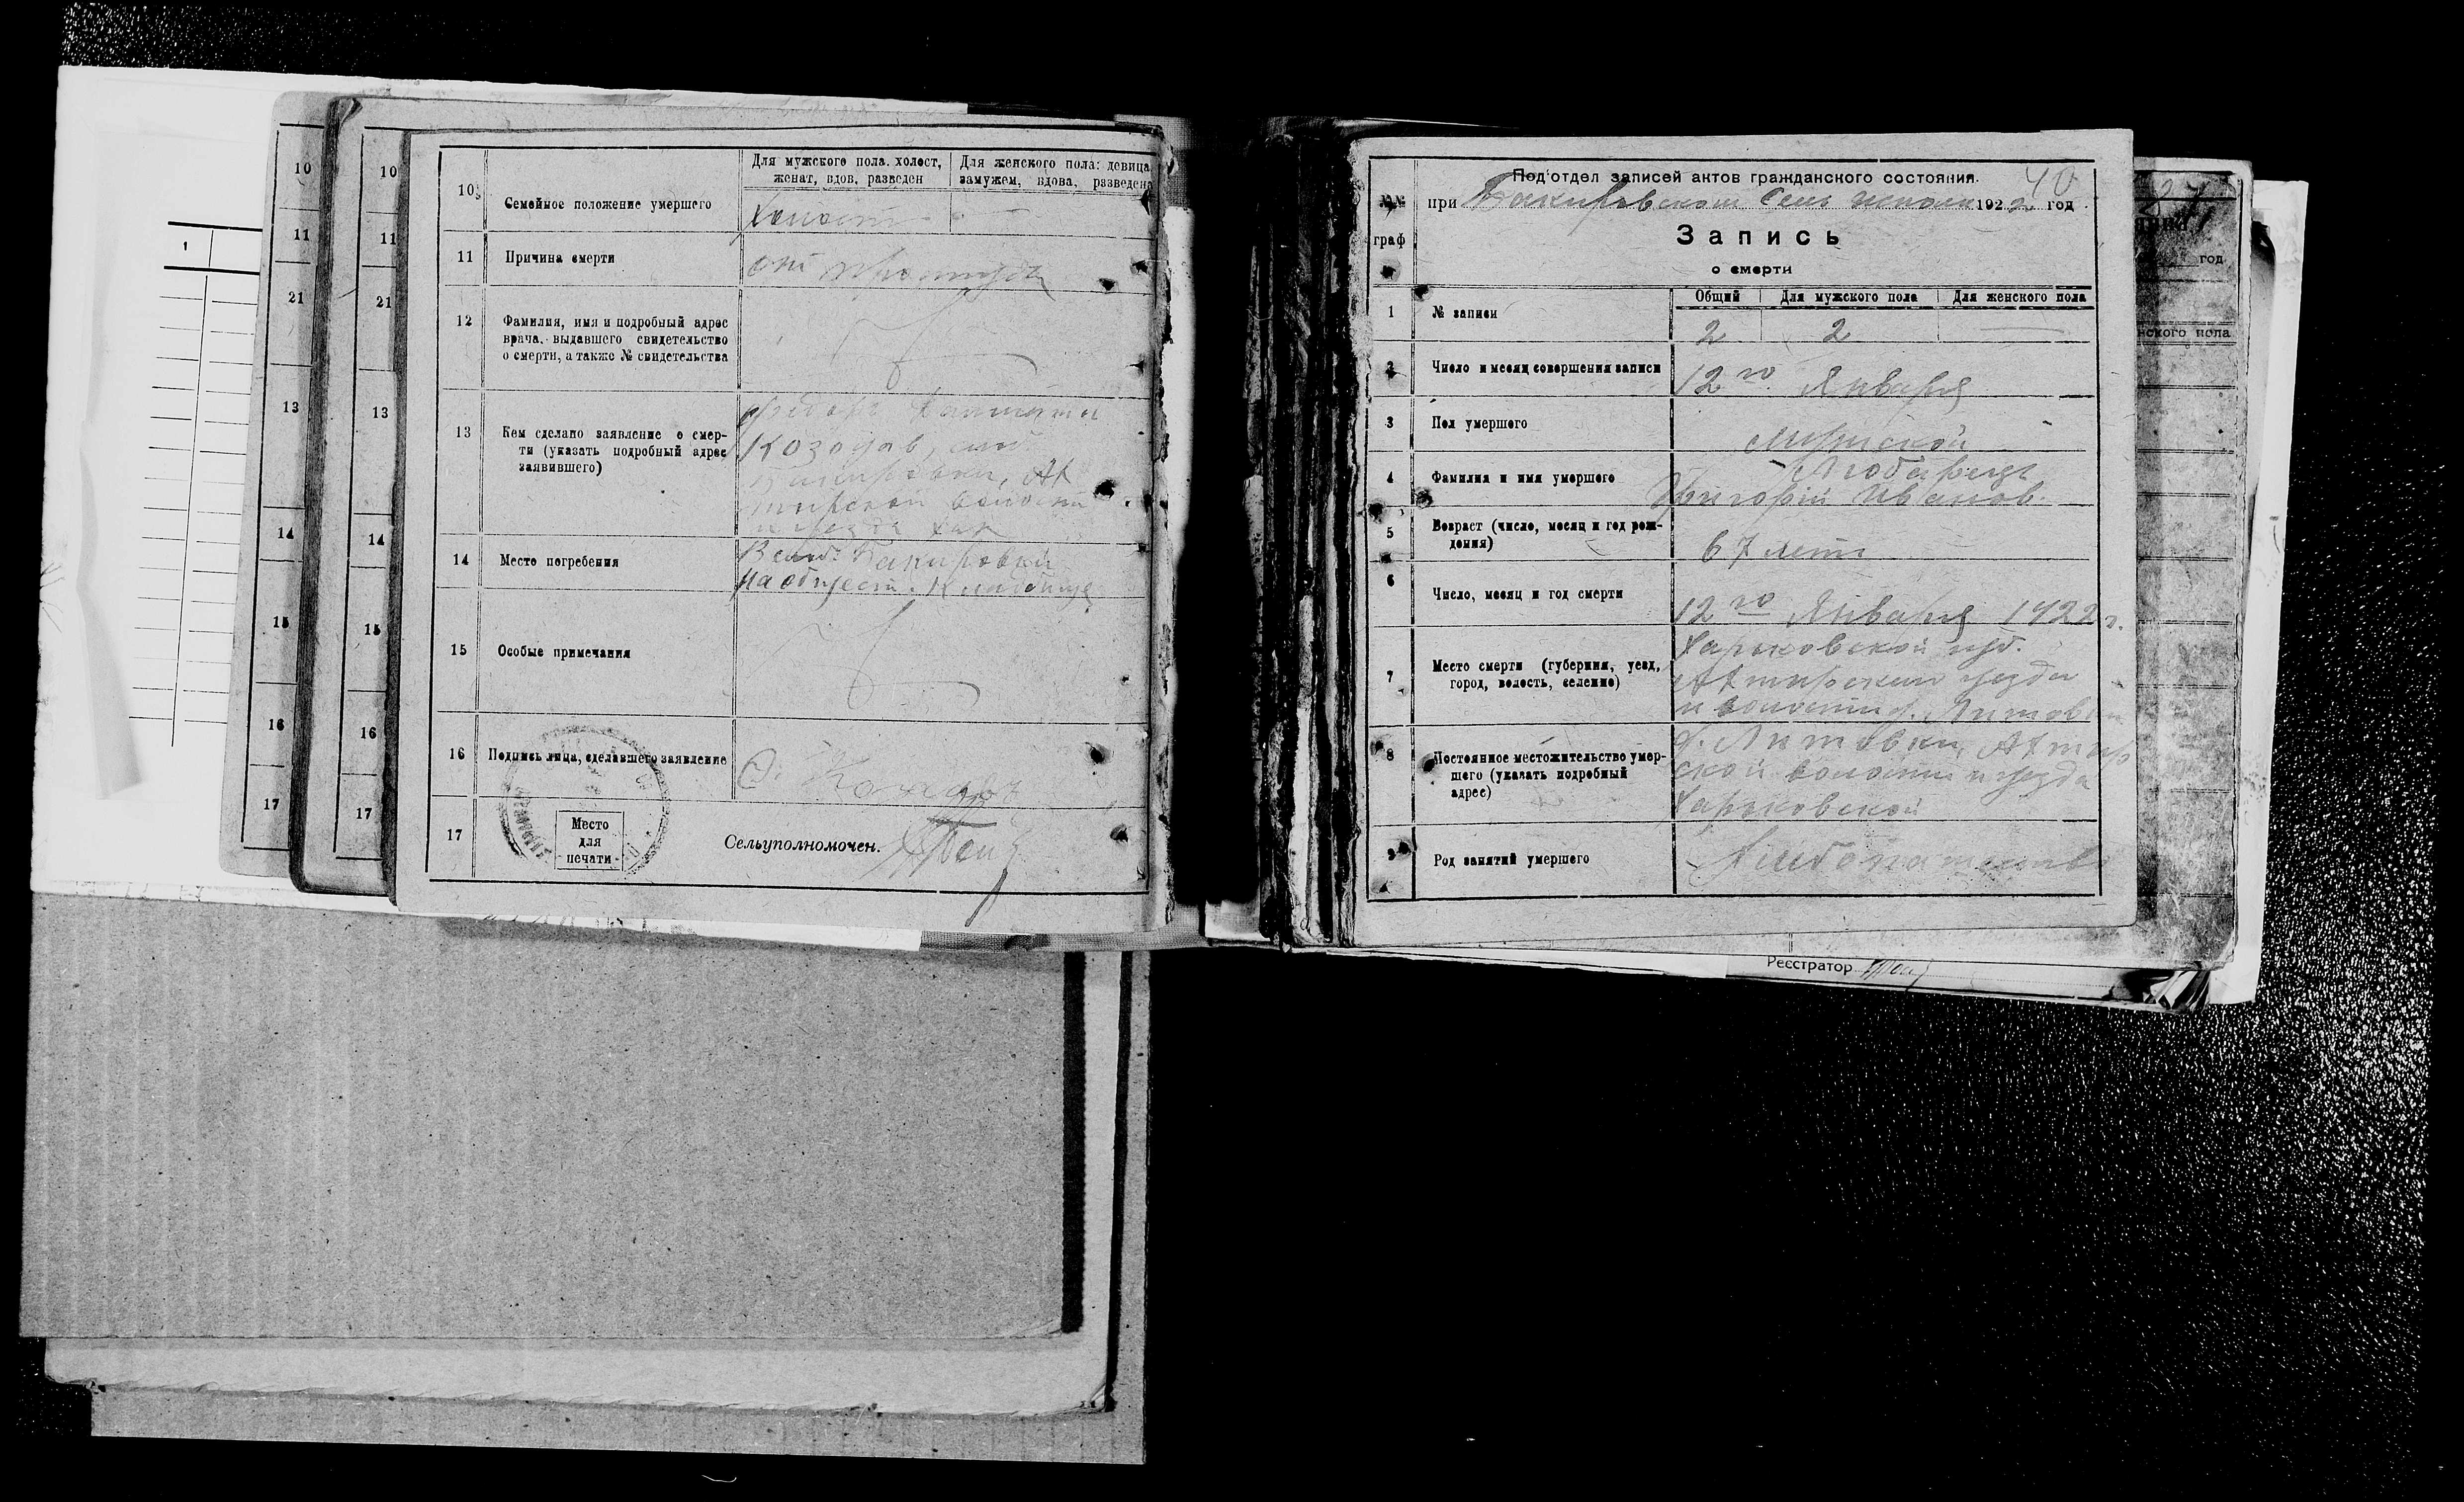 10
11
21
13
14
15
16
17
1
10
11
21
13
14
15
16
17
10
Семейное положение умершего
Для мужского пола. холост, женат, вдов, разведен
Для женского пола: девица, замужем, вдова, разведена
Холост
11
Причина смерти
от простуды
12
Фамилия, имя и подробный адрес
врача, выдавшего свидетельство
о смерти, а также № свидетельства
13
Кем сделано заявление о смер-
ти (указать подробный адрес
заявившего)
Козодав,
Бакировки, Ах
тырской волости
и уезда Хар
14
Место погребения
В слоб. Бакировки
на общест. Кладбище
15
Особые примечания
16
Подпись лица, сделавшего заявление
17
Место
для
печати
Сельуполномочен.
40
Под‘отдел записей актов гражданского состояния.
№№
граф
при Бакировском Сель исполк 1922 год
Запись
о смерти
1
№ записи
Общий
Для мужского пола
Для женского пола
2
2
2
Число и месяц совершения записи
12го Января
3
Пол умершого
Мужской
4
Фамилия и имя умершого
Любарец
Григорий Иванов.
5
Возраст (число, месяц и год рож-
дения)
67 лет
6
Число, месяц и год смерти
12го Января 1922 г.
7
Место смерти (губерния, уезд,
город, волость, селение)
Харьковской губ.
Ахтырского уезда
и волости д. Литовки
8
Постоянное местожительство умер-
шего (указать подробный
адрес)
д. Литовки, Ахтыр
ской волости и уезда
Харьковской
9
Род занятий умершого
Хлебопашество
27
год
нского пола
Реестратор